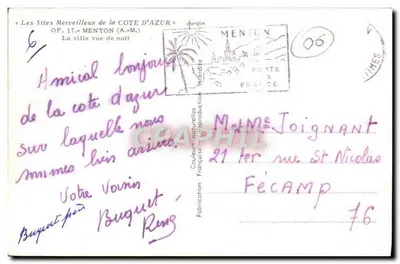 « Les Sites Merveilleux de la COTE D'AZUR »
OF. 17.- MENTON (A.-M.)
La ville vue de nuit
6
Amical bonjour
de la cote d'azur
sur laquelle nous
sommes bien arrivés.
Votre Voisin
Buguet
René
MENTON
PERLE
FRANCE
06
Couleurs naturelles
Fabrication Française - Reproduction Interdite
M et Me Joignant
21 ter rue St Nicolas
FÉCAMP
76